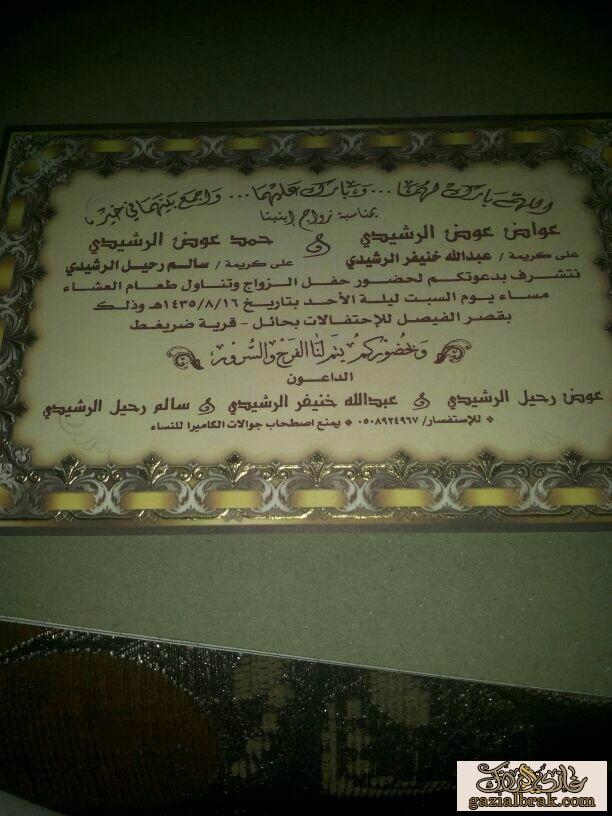 اللهم بارك لهما ... وبارك عليهما ... واجمع بينهما في خير
بمناسبة زواج إبنينا
عواض عوض الرشيدي و حمد عوض الرشيدي
على كريمة / عبدالله خنيفر الرشيدي على كريمة / سالم رحيل الرشيدي
نتشرف بدعوتكم لحضور حفل الزواج وتناول طعام العشاء
مساء يوم السبت ليلة الأحد بتاريخ ١٤٣٥/٨/١٦هـ وذلك
بقصر الفيصل للإحتفالات بحائل - قرية ضريغط
وبحضوركم يتم لنا الفرح والسرور
الداعون
عوض رحيل الرشيدي و عبدالله خنيفر الرشيدي و سالم رحيل الرشيدي
* للإستفسار/ ٠٥٠٨٩٢٤٩٦٧ * يمنع اصطحاب جوالات الكاميرا للنساء
gazialbrak.com